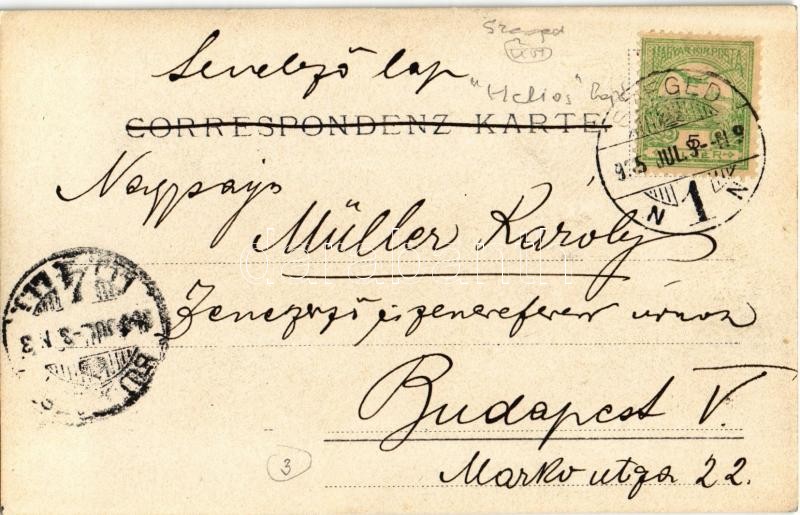 Szeged
Levelező lap
"Helios"
CORRESPONDENZ KARTE
MAGYAR KIR. POSTA
5
SZEGED
905 JUL. 3
N 1 N
Nagyságos
Müller Károly
darabanth
Zeneszerző és zenereferens úrnak
Budapest V.
Markó utcza 22.
BUDA
JUL. 3 N 3
3